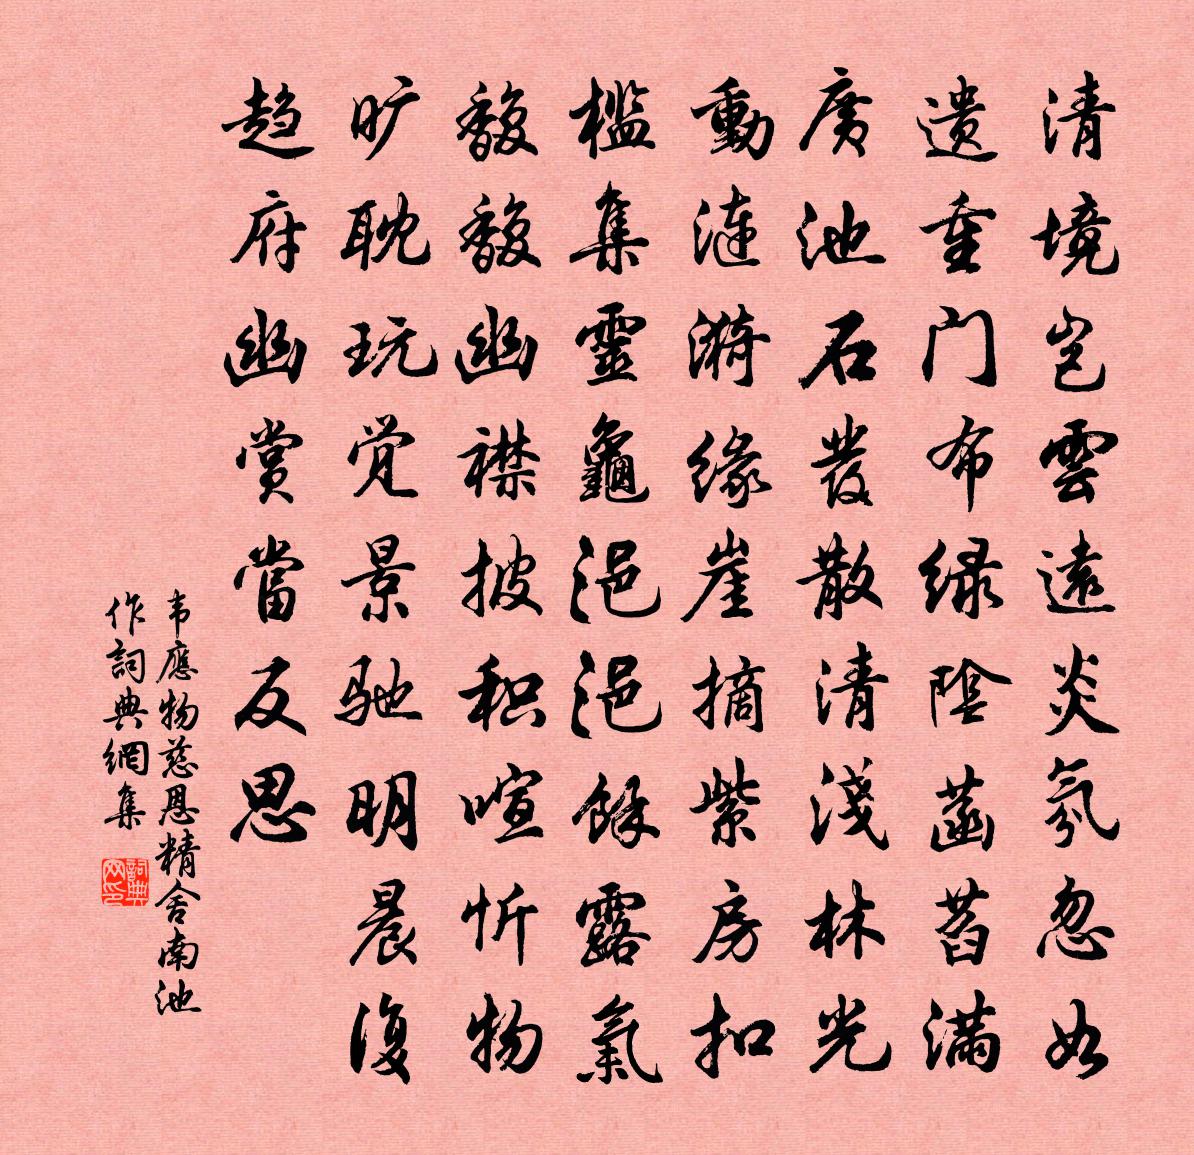 清境岂雲遠炎氛忽如
遗重门布绿陰菡萏满
廣池石發散清淺林光
動漣漪缘崖摘紫房扣
檻集靈龜浥浥餘露氣
馥馥幽襟披积喧忻物
旷耽玩觉景驰明晨復
趋府幽賞當反思
韦應物慈恩精舍南池
作詞典網集
詞典网印